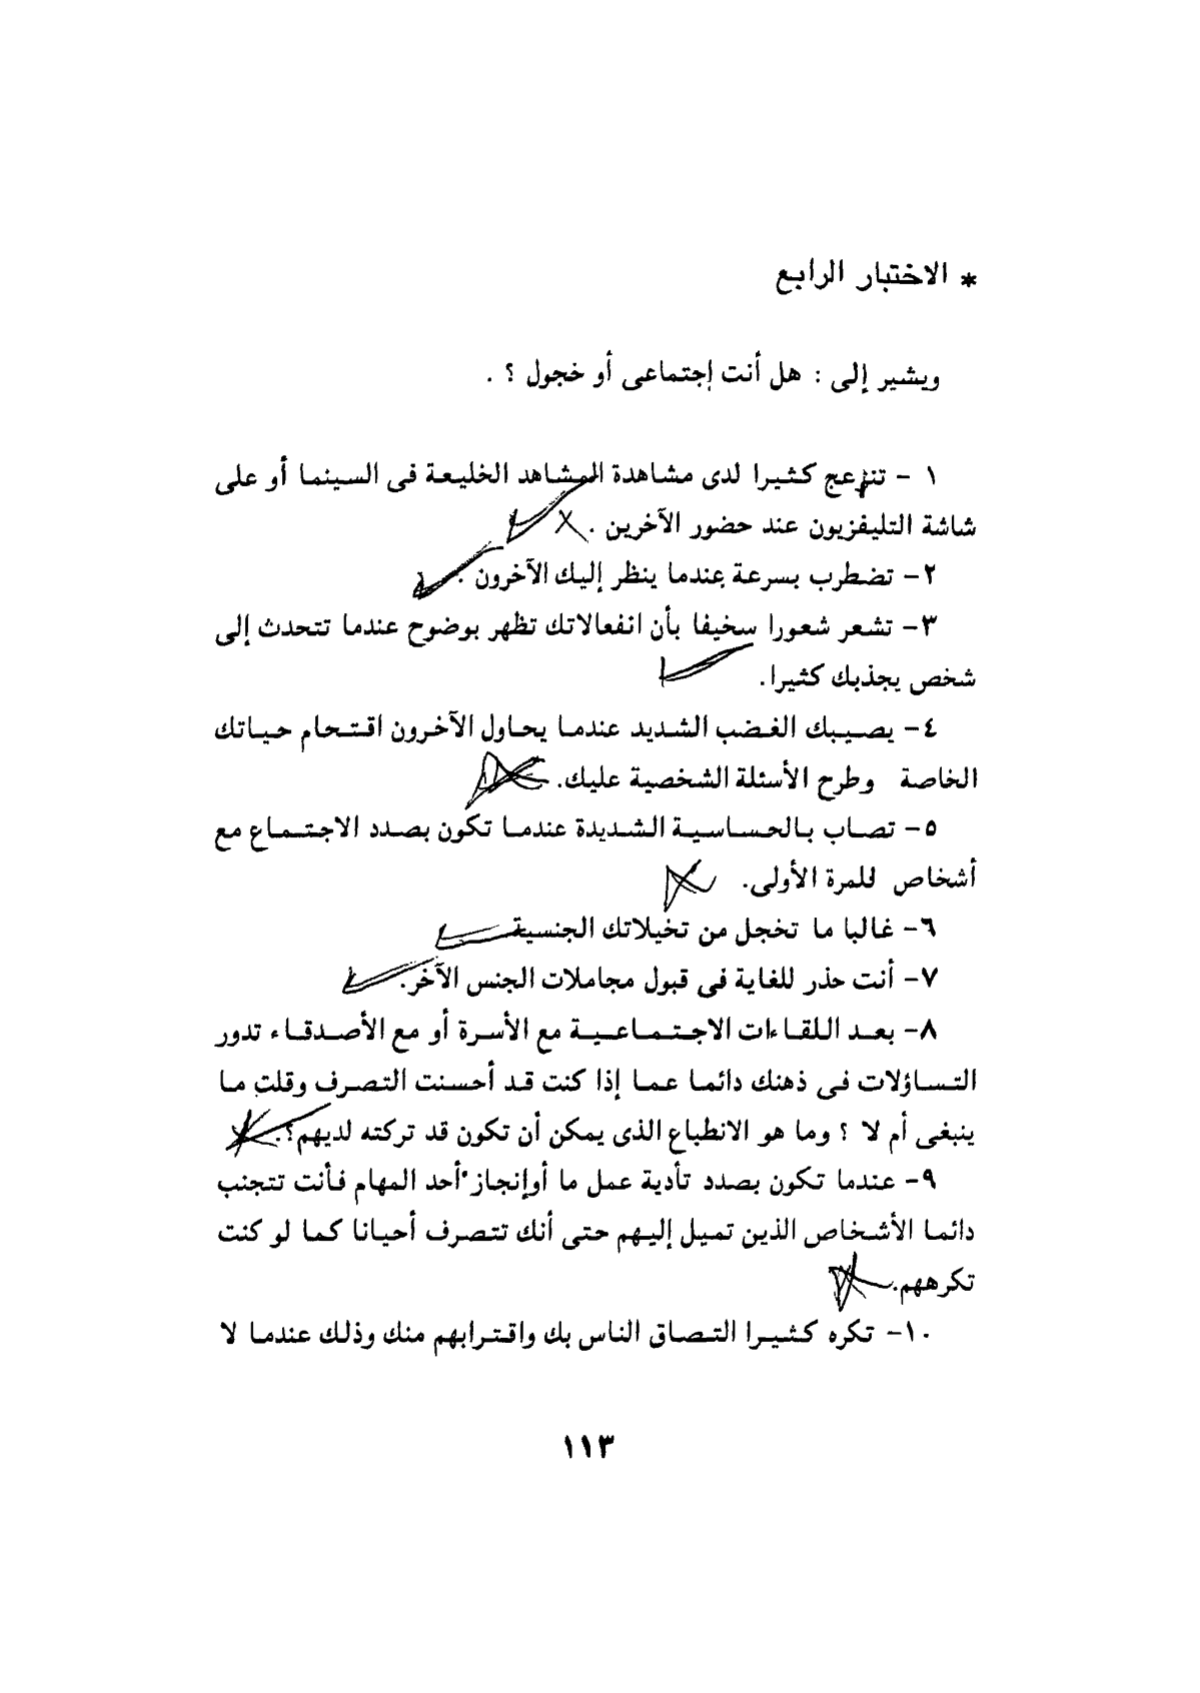 * الاختبار الرابع
ويشير إلى : هل أنت إجتماعى أو خجول ؟ .
١ - تنزعج كثيرا لدى مشاهدة المشاهد الخليعة فى السينما أو على
شاشة التليفزيون عند حضور الآخرين .
٢- تضطرب بسرعة عندما ينظر إليك الآخرون .
٣- تشعر شعورا سخيفا بأن انفعالاتك تظهر بوضوح عندما تتحدث إلى
شخص يجذبك كثيرا.
٤- يصيبك الغضب الشديد عندما يحاول الآخرون اقتحام حياتك
الخاصة وطرح الأسئلة الشخصية عليك.
٥- تصاب بالحساسية الشديدة عندما تكون بصدد الاجتماع مع
أشخاص للمرة الأولى.
٦- غالبا ما تخجل من تخيلاتك الجنسية
٧- أنت حذر للغاية فى قبول مجاملات الجنس الآخر.
٨- بعد اللقاءات الاجتماعية مع الأسرة أو مع الأصدقاء تدور
التساؤلات فى ذهنك دائما عما إذا كنت قد أحسنت التصرف وقلت ما
ينبغى أم لا ؟ وما هو الانطباع الذى يمكن أن تكون قد تركته لديهم؟.
٩- عندما تكون بصدد تأدية عمل ما أوإنجاز أحد المهام فأنت تتجنب
دائما الأشخاص الذين تميل إليهم حتى أنك تتصرف أحيانا كما لو كنت
تكرههم.
١٠- تكره كثيرا التصاق الناس بك واقترابهم منك وذلك عندما لا
١١٣